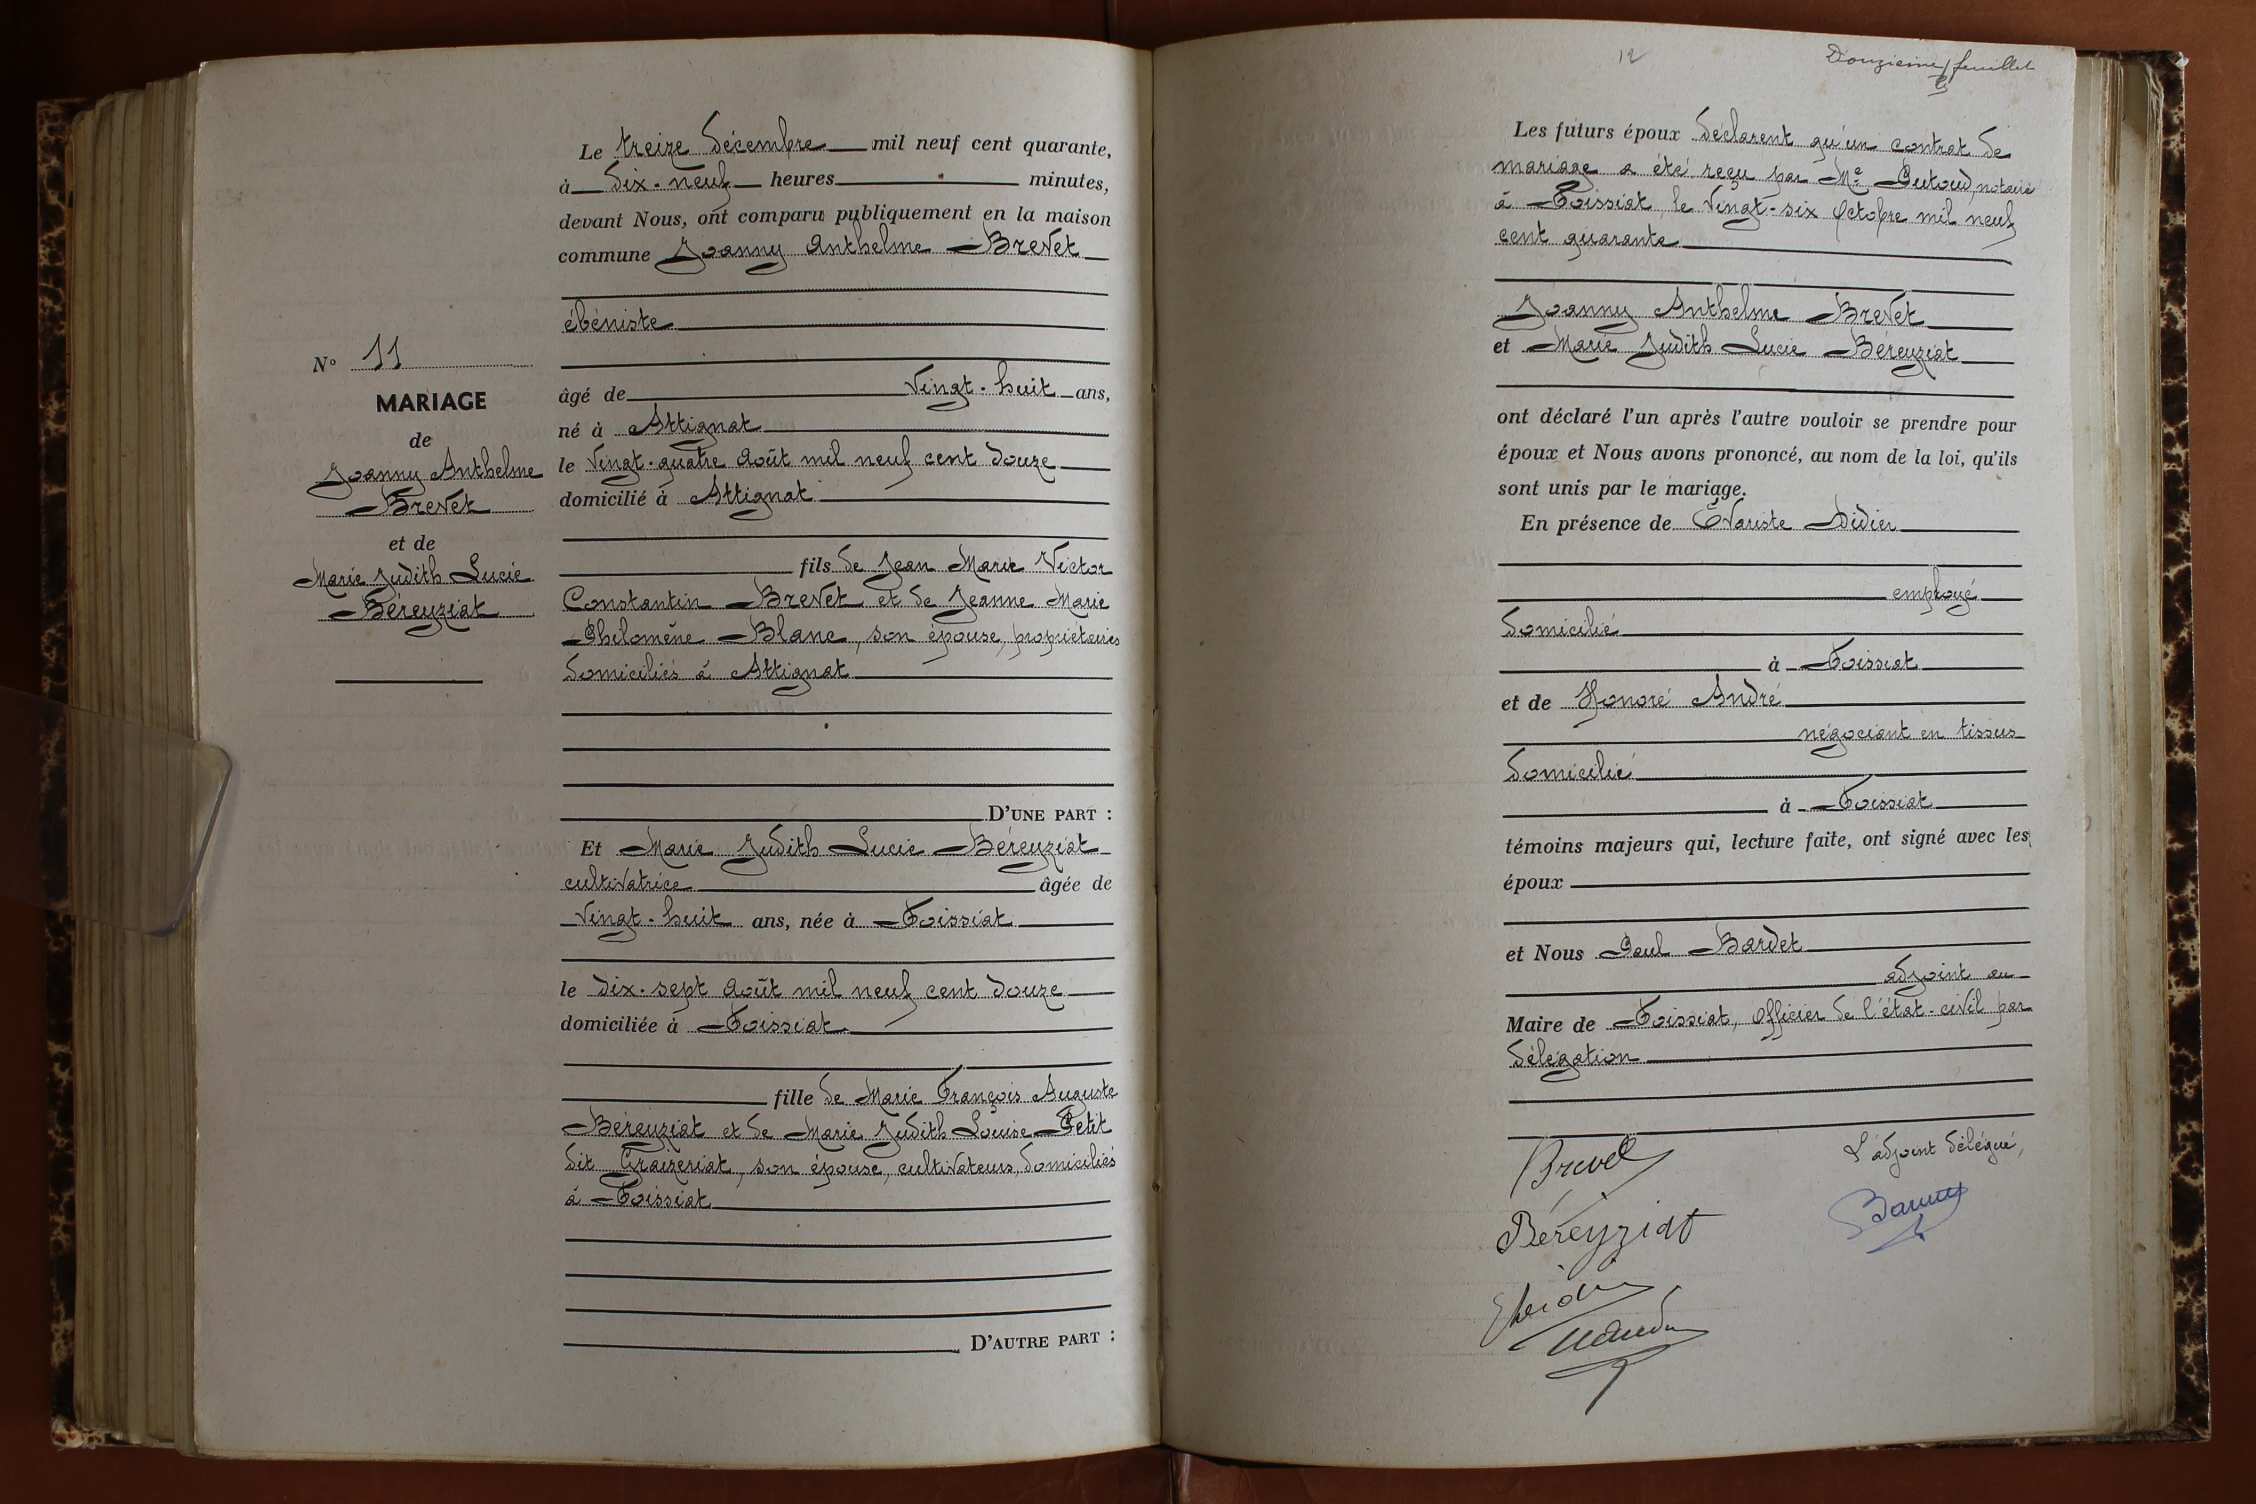 Le treize décembre mil neuf cent quarante,
à dix-neuf heures minutes,
devant Nous, ont comparu publiquement en la maison
commune Joanny Anthelme Brevet
ébéniste
N° 11
MARIAGE
de
Joanny Anthelme
Brevet
et de
Marie Judith Lucie
Béreyziat
âgé de vingt-huit ans,
né à Attignat
le vingt-quatre août mil neuf cent douze
domicilié à Attignat
fils de Jean Marie Victor
Constantin Brevet et de Jeanne Marie
Philomène Blanc, son épouse, propriétaires
domiciliés à Attignat
D'UNE PART :
Et Marie Judith Lucie Béreyziat
cultivatrice âgée de
vingt-huit ans, née à Foissiat
le dix-sept août mil neuf cent douze
domiciliée à Foissiat
fille de Marie François Auguste
Béreyziat et de Marie Judith Louise Petit
dit Graizeriat, son épouse, cultivateurs, domiciliés
à Foissiat
D'AUTRE PART :
12
Douzième feuillet
Les futurs époux déclarent qu'un contrat de
mariage a été reçu par Me notaire
à Foissiat, le vingt-six octobre mil neuf
cent quarante
Joanny Anthelme Brevet
et Marie Judith Lucie Béreyziat
ont déclaré l'un après l'autre vouloir se prendre pour
époux et Nous avons prononcé, au nom de la loi, qu'ils
sont unis par le mariage.
En présence de Évariste Didier
employé
domicilié
à Foissiat
et de Honoré André
négociant en tissus
domicilié
à Foissiat
témoins majeurs qui, lecture faite, ont signé avec les
époux
et Nous Paul Bardet
adjoint au
Maire de Foissiat, officier de l'état-civil par
délégation
Brevet
L'adjoint délégué,
Béreyziat